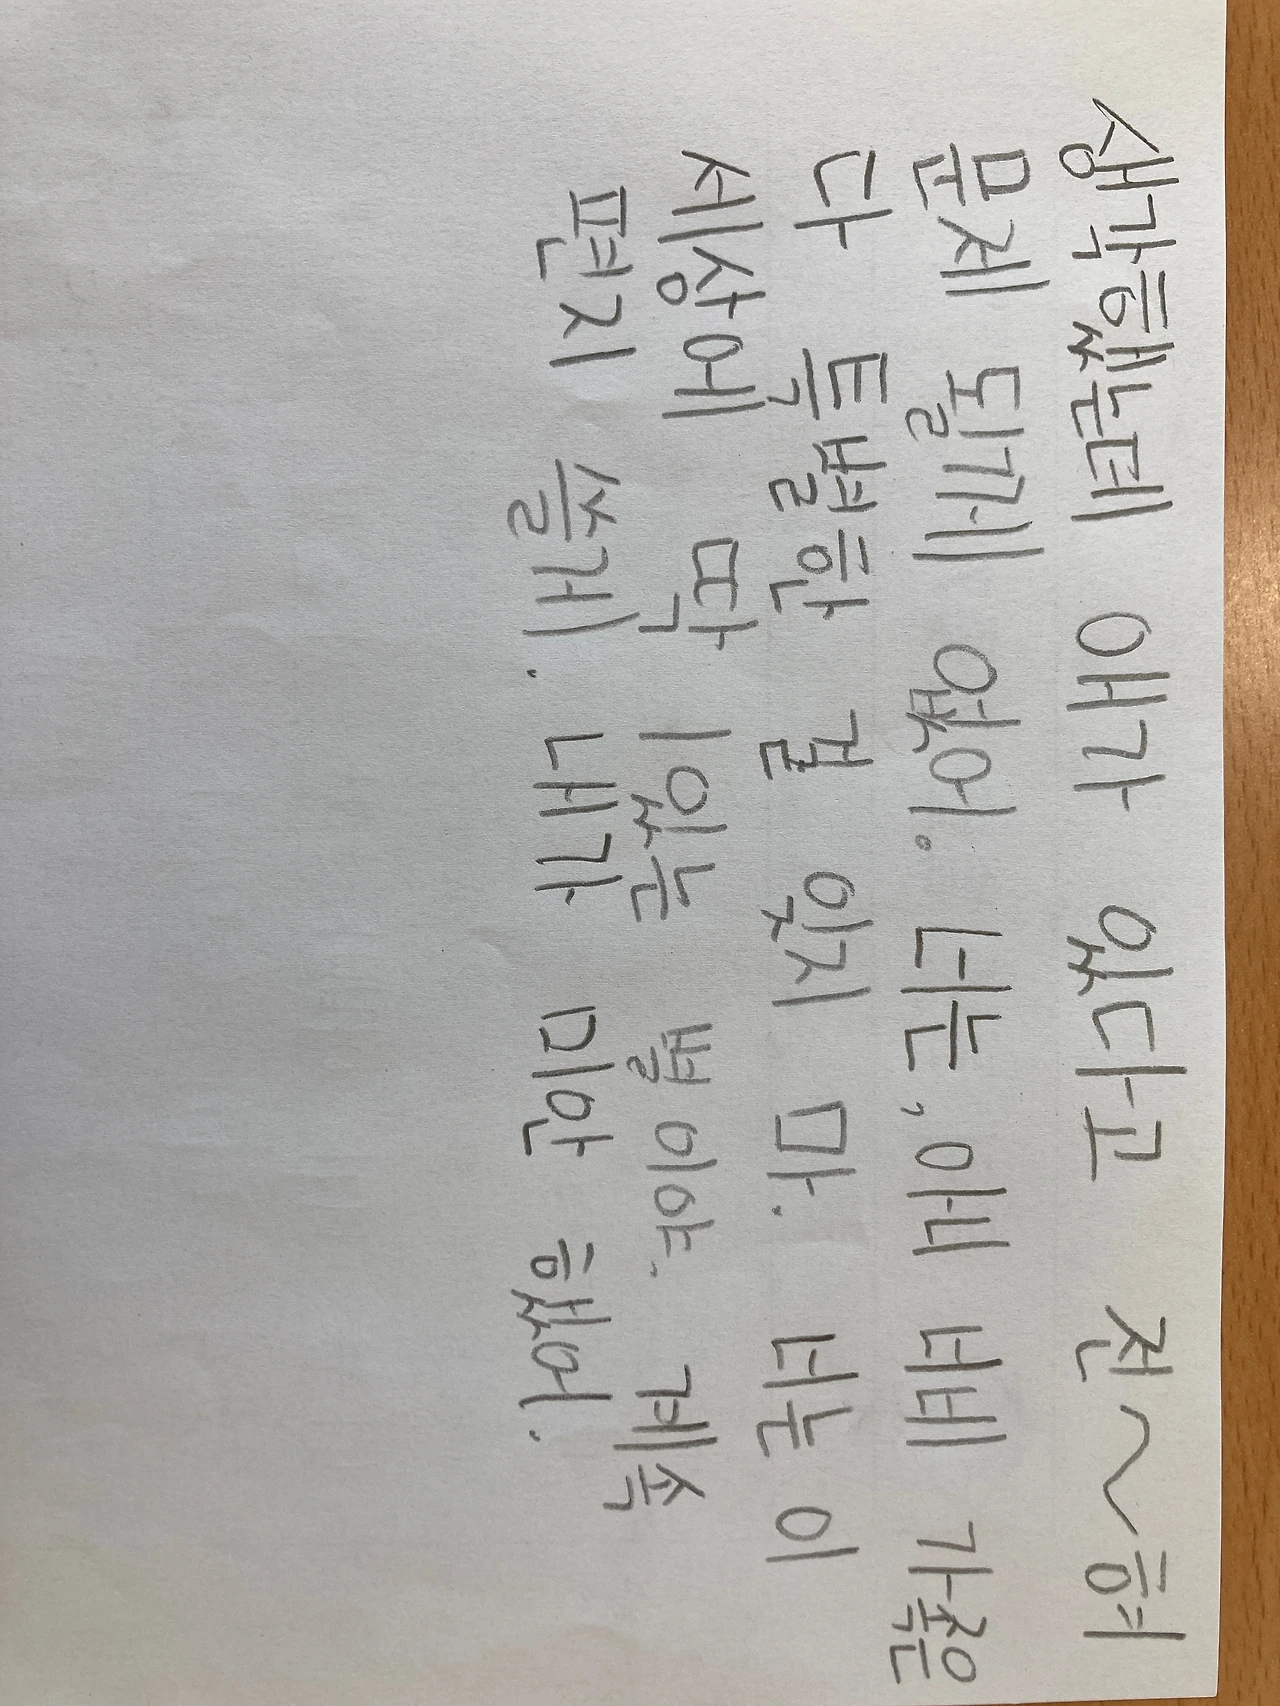 생각했는데 애가 있다고 전~혀
문제 될께 없어. 너는, 아니 너네 가족은
다 특별한 걸 잊지 마. 너는 이
세상에 딱 1있는 별이야. 계속
편지 쓸게. 내가 미안 했어.